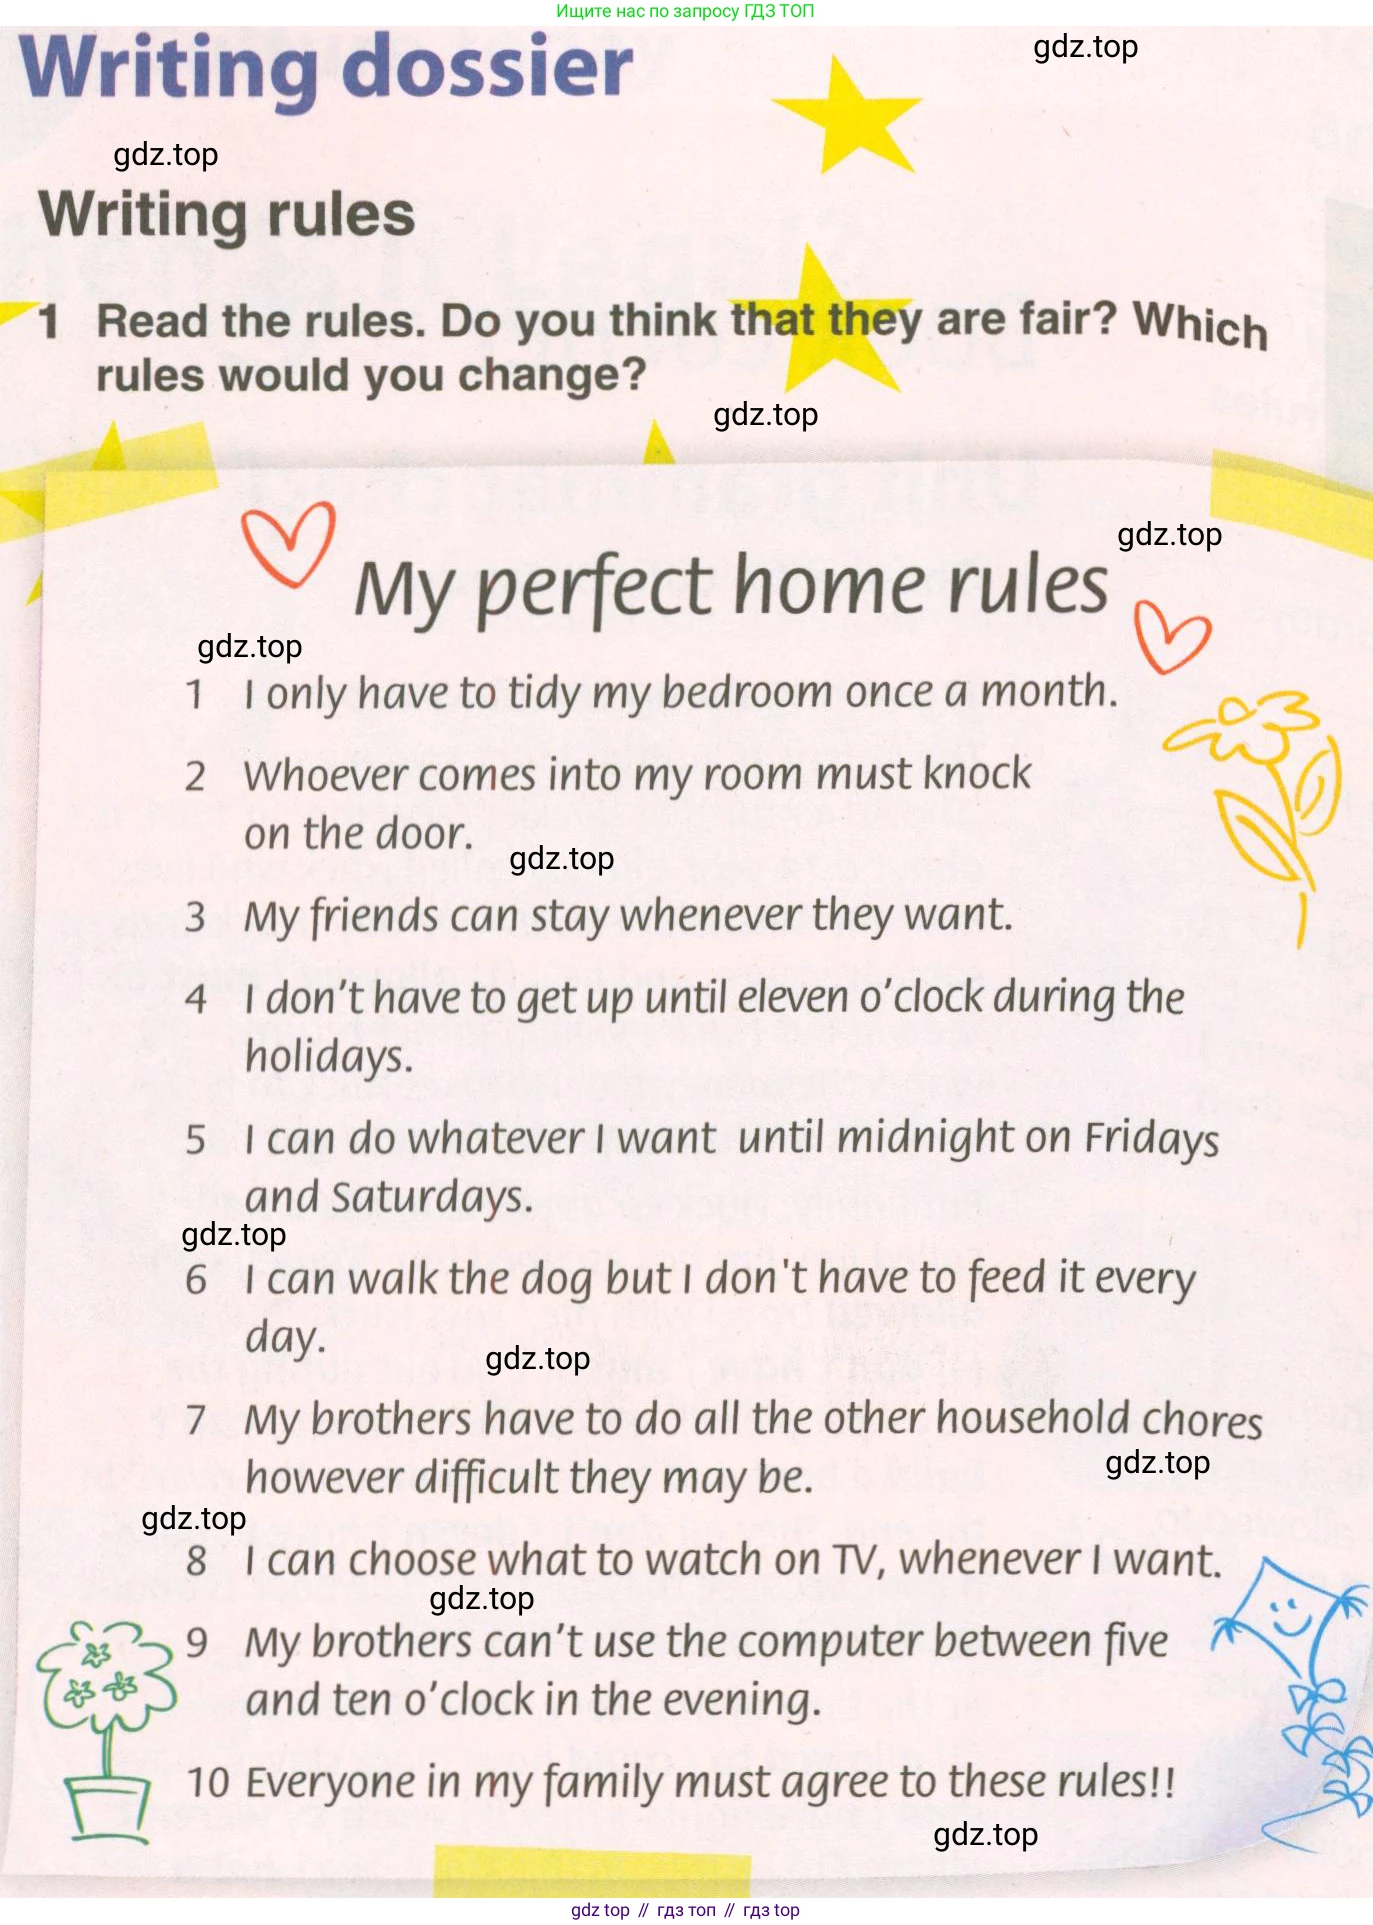 Ищите нас по запросу ГДЗ ТОП
Writing dossier
gdz.top
gdz.top
Writing rules
1 Read the rules. Do you think that they are fair? Which
rules would you change?
gdz.top
gdz.top
My perfect home rules
gdz.top
1 I only have to tidy my bedroom once a month.
2 Whoever comes into my room must knock
on the door.
gdz.top
3 My friends can stay whenever they want.
4 I don't have to get up until eleven o'clock during the
holidays.
5 I can do whatever I want until midnight on Fridays
and Saturdays.
gdz.top
6 I can walk the dog but I don't have to feed it every
day.
gdz.top
7 My brothers have to do all the other household chores
however difficult they may be.
gdz.top
gdz.top
8 I can choose what to watch on TV, whenever I want.
gdz.top
9 My brothers can't use the computer between five
and ten o'clock in the evening.
10 Everyone in my family must agree to these rules!!
gdz.top
gdz top // гдз топ // гдз top